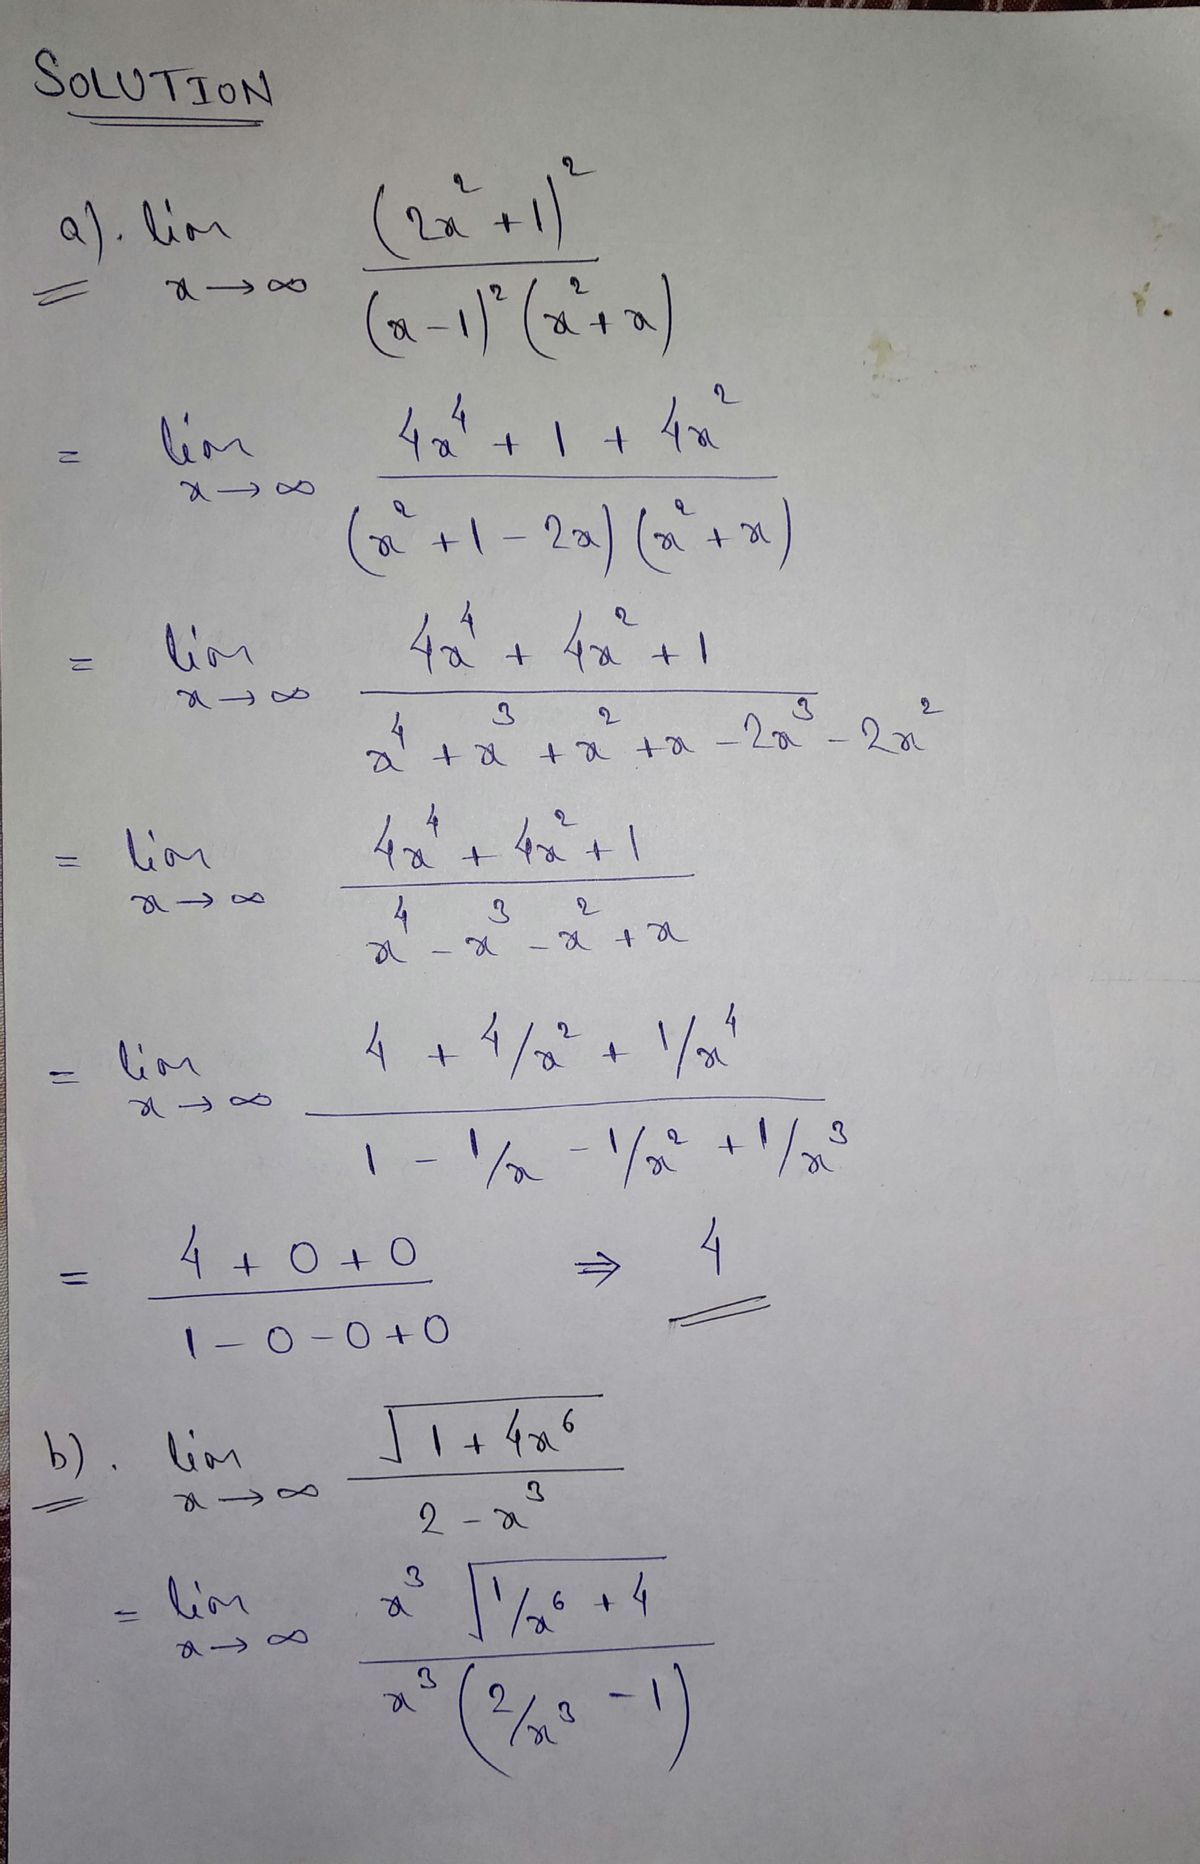 SOLUTION
a). lim x→∞ (2x²+1)² / (x-1)² (x²+x)
= lim x→∞ 4x⁴ + 1 + 4x² / (x²+1-2x) (x²+x)
= lim x→∞ 4x⁴ + 4x² + 1 / x⁴ + x³ + x² + x - 2x³ - 2x²
= lim x→∞ 4x⁴ + 4x² + 1 / x⁴ - x³ - x² + x
= lim x→∞ 4 + 4/x² + 1/x⁴ / 1 - 1/x - 1/x² + 1/x³
= 4 + 0 + 0 / 1 - 0 - 0 + 0 ⇒ 4
b). lim x→∞ √(1 + 4x⁶) / 2 - x³
= lim x→∞ x³ √(1/x⁶ + 4) / x³ (2/x³ - 1)